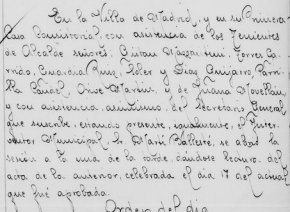 En la Villa de Madrid, y en su Primera
Casa Consistorial, con asistencia de los Tenientes
de Alcalde señores, Torres Ga-
rrido, Soler y Díaz Guijarro, Parre-
lla y de
y con asistencia, asimismo, del Secretario General
que suscribe, estando presente, igualmente, el Inter-
ventor Municipal, Sr. Ballesté, se abrió la
sesión a la una de la tarde, dándose lectura del
acta de la anterior, celebrada el día 17 del actual
que fué aprobada.
Orden del día